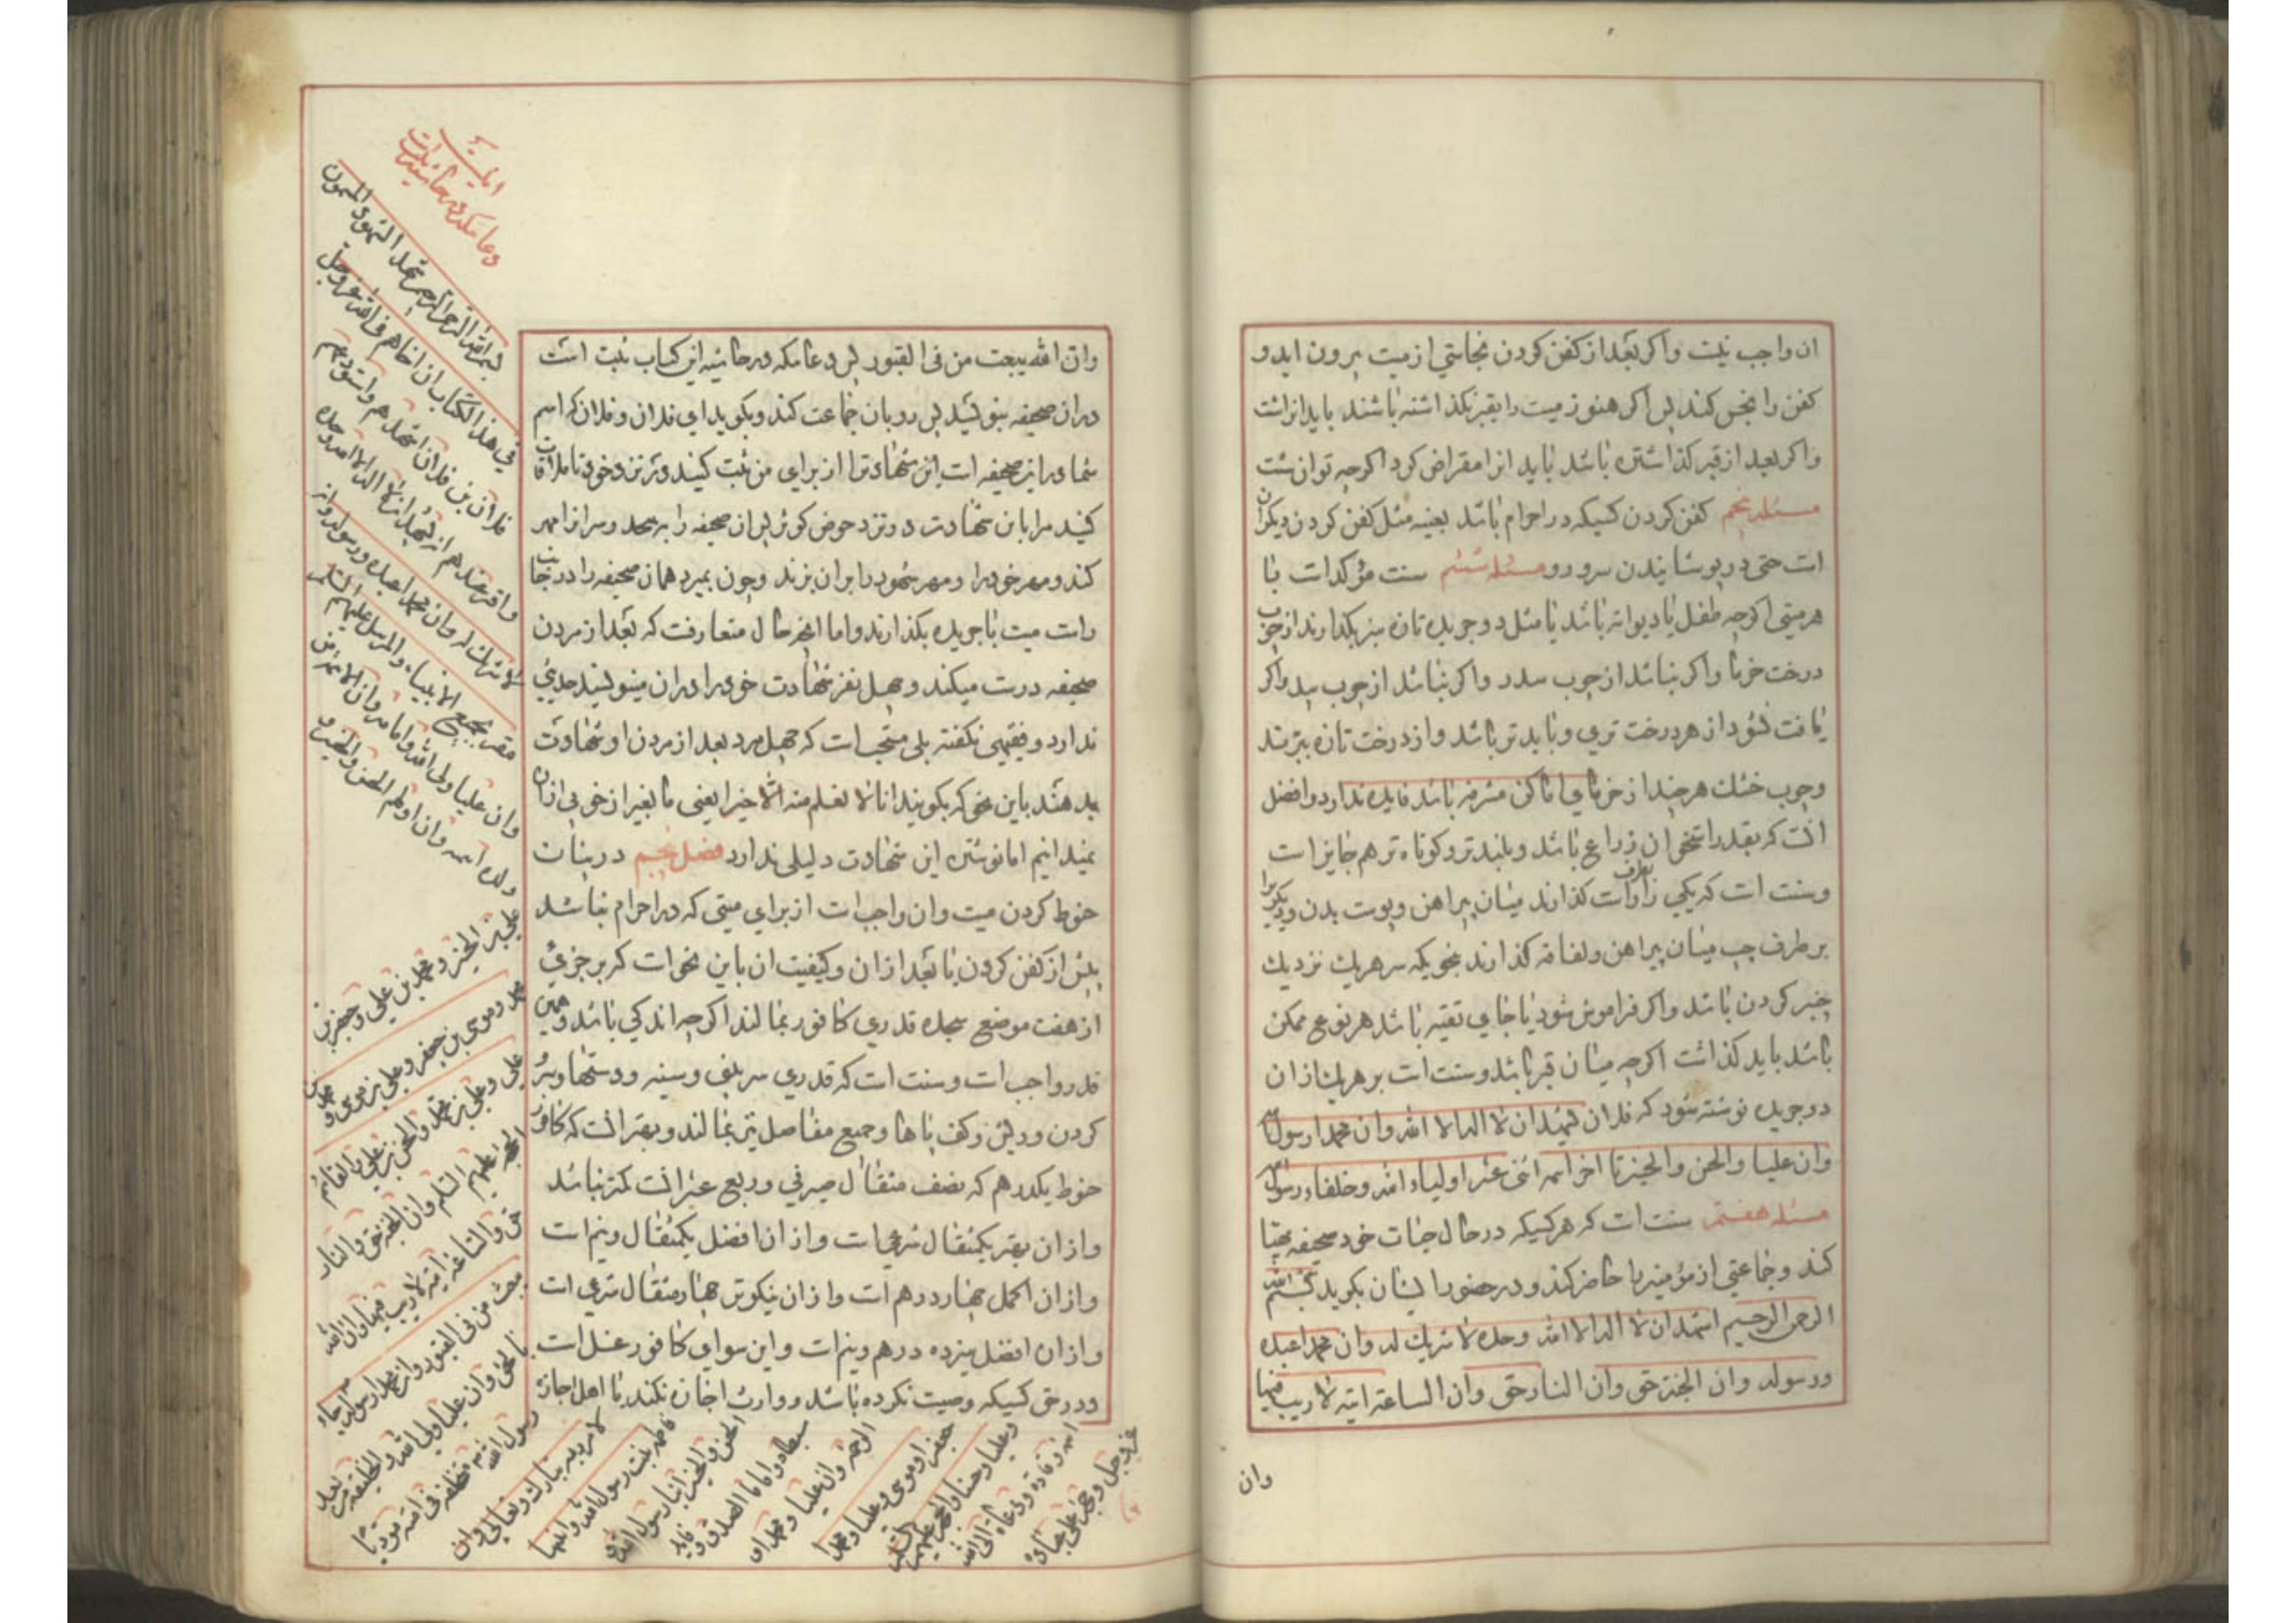 ان واجب نیست واکر بعد از کفن کردن نجاستی از میت بیرون اید و
کفن را نجس کند پس اکر هنوز میت را بقبر نکذاشته باشند باید انرا شست
واکر بعد از قبر کذاشتن باشد باید انرا مقراض کرد اکرچه توان شست
مسئله پنجم کفن کردن کسیکه در احرام باشد بعینه مثل کفن کردن دیکران
است حتی در پوشانیدن سر و رو مسئله ششم سنت مؤکد است با
هر میتی اکرچه طفل یا دیوانه باشد یا مثل دو جریده تازه سبز بکذارند از چوب
درخت خرما واکر نباشد از چوب سدر واکر نباشد از چوب بید واکر
یافت نشود از هر درخت تری و باید تر باشد و از درخت تازه ببرند
وچوب خشک هرچند از خرمای اماکن مشرفه باشد فایده ندارد و افضل
انست که بقدر استخوان ذراع باشد و بلندتر و کوتاه تر هم جایز است
وسنت است که یکی را بطرف راست کذارند میان پیراهن و پوست بدن ودیکریرا
بر طرف چپ میان پیراهن ولفافه کذارند بنحویکه سر هریک نزدیک
چنبر کردن باشد واکر فراموش شود یا جای تقیه باشد هر نوع ممکن
باشد باید کذاشت اکرچه میان قبر باشد و سنت است بر هریک از ان
دو جریده نوشته شود که فلان یشهد ان لا اله الا الله وان محمدا رسول الله
وان علیا والحسن والحسین تا اخر ائمه اثنی عشر اولیاء الله وخلفاء رسول الله
مسئله هفتم سنت است که هر کسیکه در حال حیات خود صحیفه مهیا
کند و جماعتی از مؤمنین را حاضر کند و در حضور ایشان بکوید بسم الله
الرحمن الرحیم اشهد ان لا اله الا الله وحده لا شریک له وان محمدا عبده
ورسوله وان الجنة حق وان النار حق وان الساعة اتیة لا ریب فیها
وان
وان الله یبعث من فی القبور پس دعائیکه در حاشیه این کتاب ثبت است
در ان صحیفه بنویسد پس رو بان جماعت کند وبکوید ای فلان وفلان که اسم
شما در این صحیفه است این شهادترا از برای من ثبت کنید در نزد خود تا ملاقات
کنید مرا باین شهادت در نزد حوض کوثر پس ان صحیفه را بپیچد وسر انرا مهر
کند ومهر خود را ومهر شهود را بران بزند وچون بمیرد همان صحیفه را در جانب
راست میت با جریده بکذارند واما اینحال متعارفست که بعد از مردن
صحیفه درست میکند وچهل نفر شهادت خود را در ان مینویسند حدیثی
ندارد وفقیهی نکفته بلی مستحب است که چهل مرد بعد از مردن او شهادت
بدهند باین نحو که بکویند انا لا نعلم منه الا خیرا یعنی ما بغیر از خوبی از ان
نمیدانیم اما نوشتن این شهادت دلیلی ندارد فصل پنجم در بیان
حنوط کردن میت وان واجب است از برای میتی که در احرام نباشد
پیش از کفن کردن یا بعد از ان وکیفیت ان باین نحو است که بر جزئی
از هفت موضع سجده قدری کافور بمالند اکرچه اندکی باشد وهمین
قدر واجب است وسنت است که قدری سر بینی وسینه ودستها وسر
کردن و ریش وکف پاها وجمیع مفاصل نیز بمالند وبهتر انست که کافور
حنوط یکدرهم که نصف مثقال صیرفی وربع عشر انست کمتر نباشد
واز ان بهتر یکمثقال شرعی است واز ان افضل یکمثقال ونیم است
واز ان اکمل چهار درهم است واز ان نیکوتر چهار مثقال شرعی است
واز ان افضل سیزده درهم ونیم است واین سوای کافور غسل است
ودر حق کسیکه وصیت نکرده باشد و وارث اجازه نکند یا اهل اجازه
دعائیکه در حاشیه
بسم الله الرحمن الرحیم شهد الشهود المسمون
فی هذا الکتاب ان اخاهم فی الله عز وجل
فلان بن فلان اشهدهم واستودعهم
واقر عندهم انه یشهد ان لا اله الا الله وحده
لا شریک له وان محمدا عبده ورسوله وانه
مقر بجمیع الانبیاء والرسل علیهم السلم
وان علیا ولی الله وامامه وان الائمة من
ولده ائمه وان اولهم الحسن والحسین و
علی بن الحسین ومحمد بن علی وجعفر بن
محمد وموسی بن جعفر وعلی بن موسی ومحمد بن
علی وعلی بن محمد والحسن بن علی والقائم
الحجة علیهم السلم وان الجنة حق والنار
حق والساعة اتیة لا ریب فیها وان الله
یبعث من فی القبور وان محمدا رسوله جاء
بالحق وان علیا ولی الله والخلیفة من بعد
رسول الله مستخلفه فی امته مؤدیا
لامر ربه تبارک وتعالی وان
فاطمة بنت رسول الله وابنیها
الحسن والحسین ابنا رسول الله و
سبطاه واماما الهدی وقایدا
الرحمة وان علیا ومحمدا و
جعفرا وموسی وعلیا ومحمدا
وعلیا وحسنا والحجة علیهم السلم
ائمة وقادة ودعاة الی الله
عز وجل وحجة علی عباده